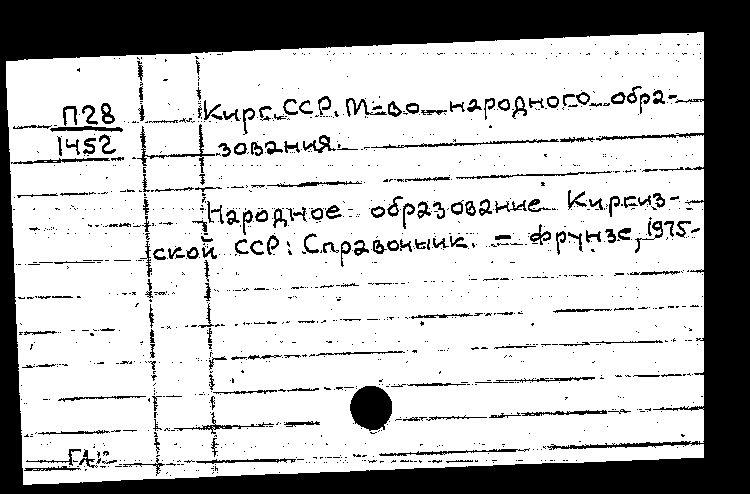 П28
1452
Кирг. ССР. М-во народного обра-
зования.
Народное образование Киргиз-
ской ССР: Справочник. - Фрунзе, 1975-